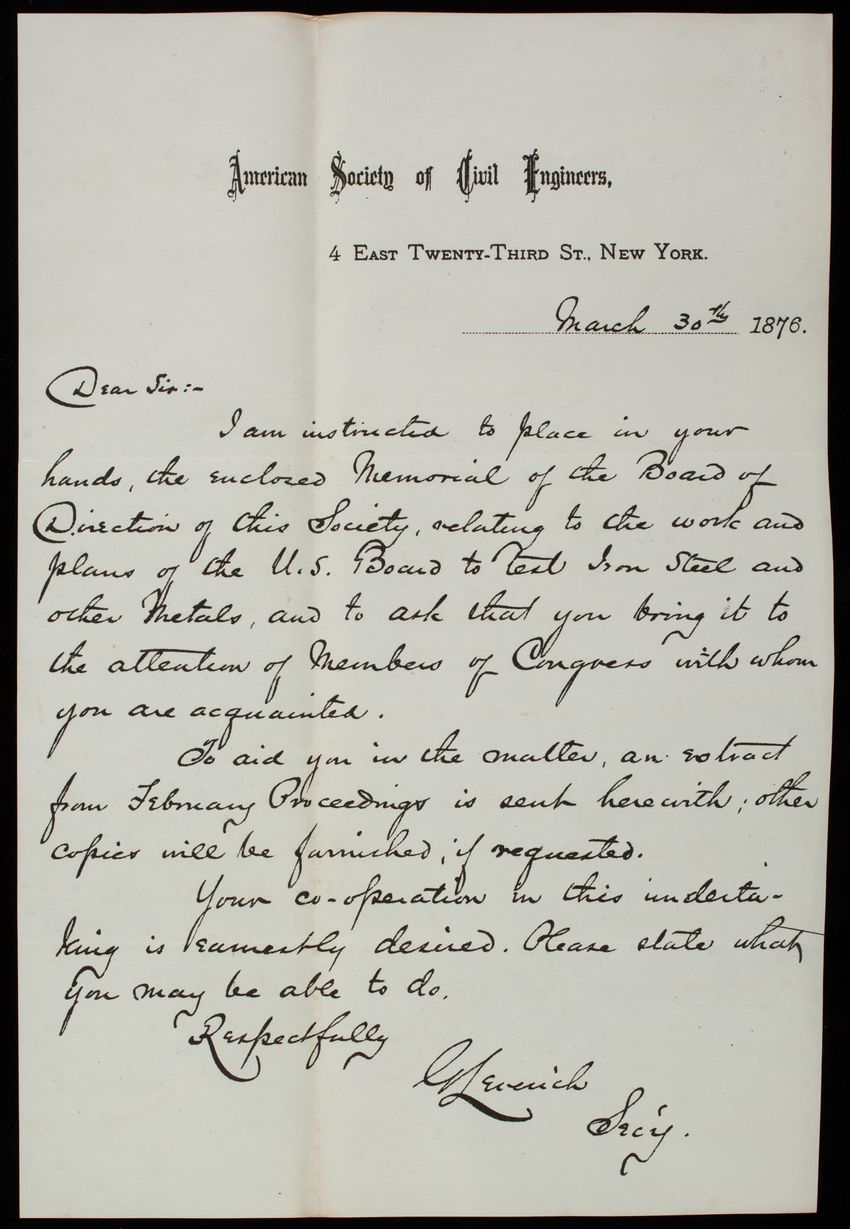 American Society of Civil Engineers,
4 East Twenty-Third St., New York.
March 30th 1876.
Dear Sir:-
I am instructed to place in your
hands, the enclosed Memorial of the Board of
Direction of this Society, relating to the work and
plans of the U.S. Board to Test Iron Steel and
other Metals, and to ask that you bring it to
the attention of Members of Congress with whom
you are acquainted.
To aid you in the matter, an extract
from February Proceedings is sent herewith; other
copies will be furnished, if requested.
Your co-operation in this underta-
king is earnestly desired. Please state what
you may be able to do.
Respectfully
G Leverich
Sec'y.